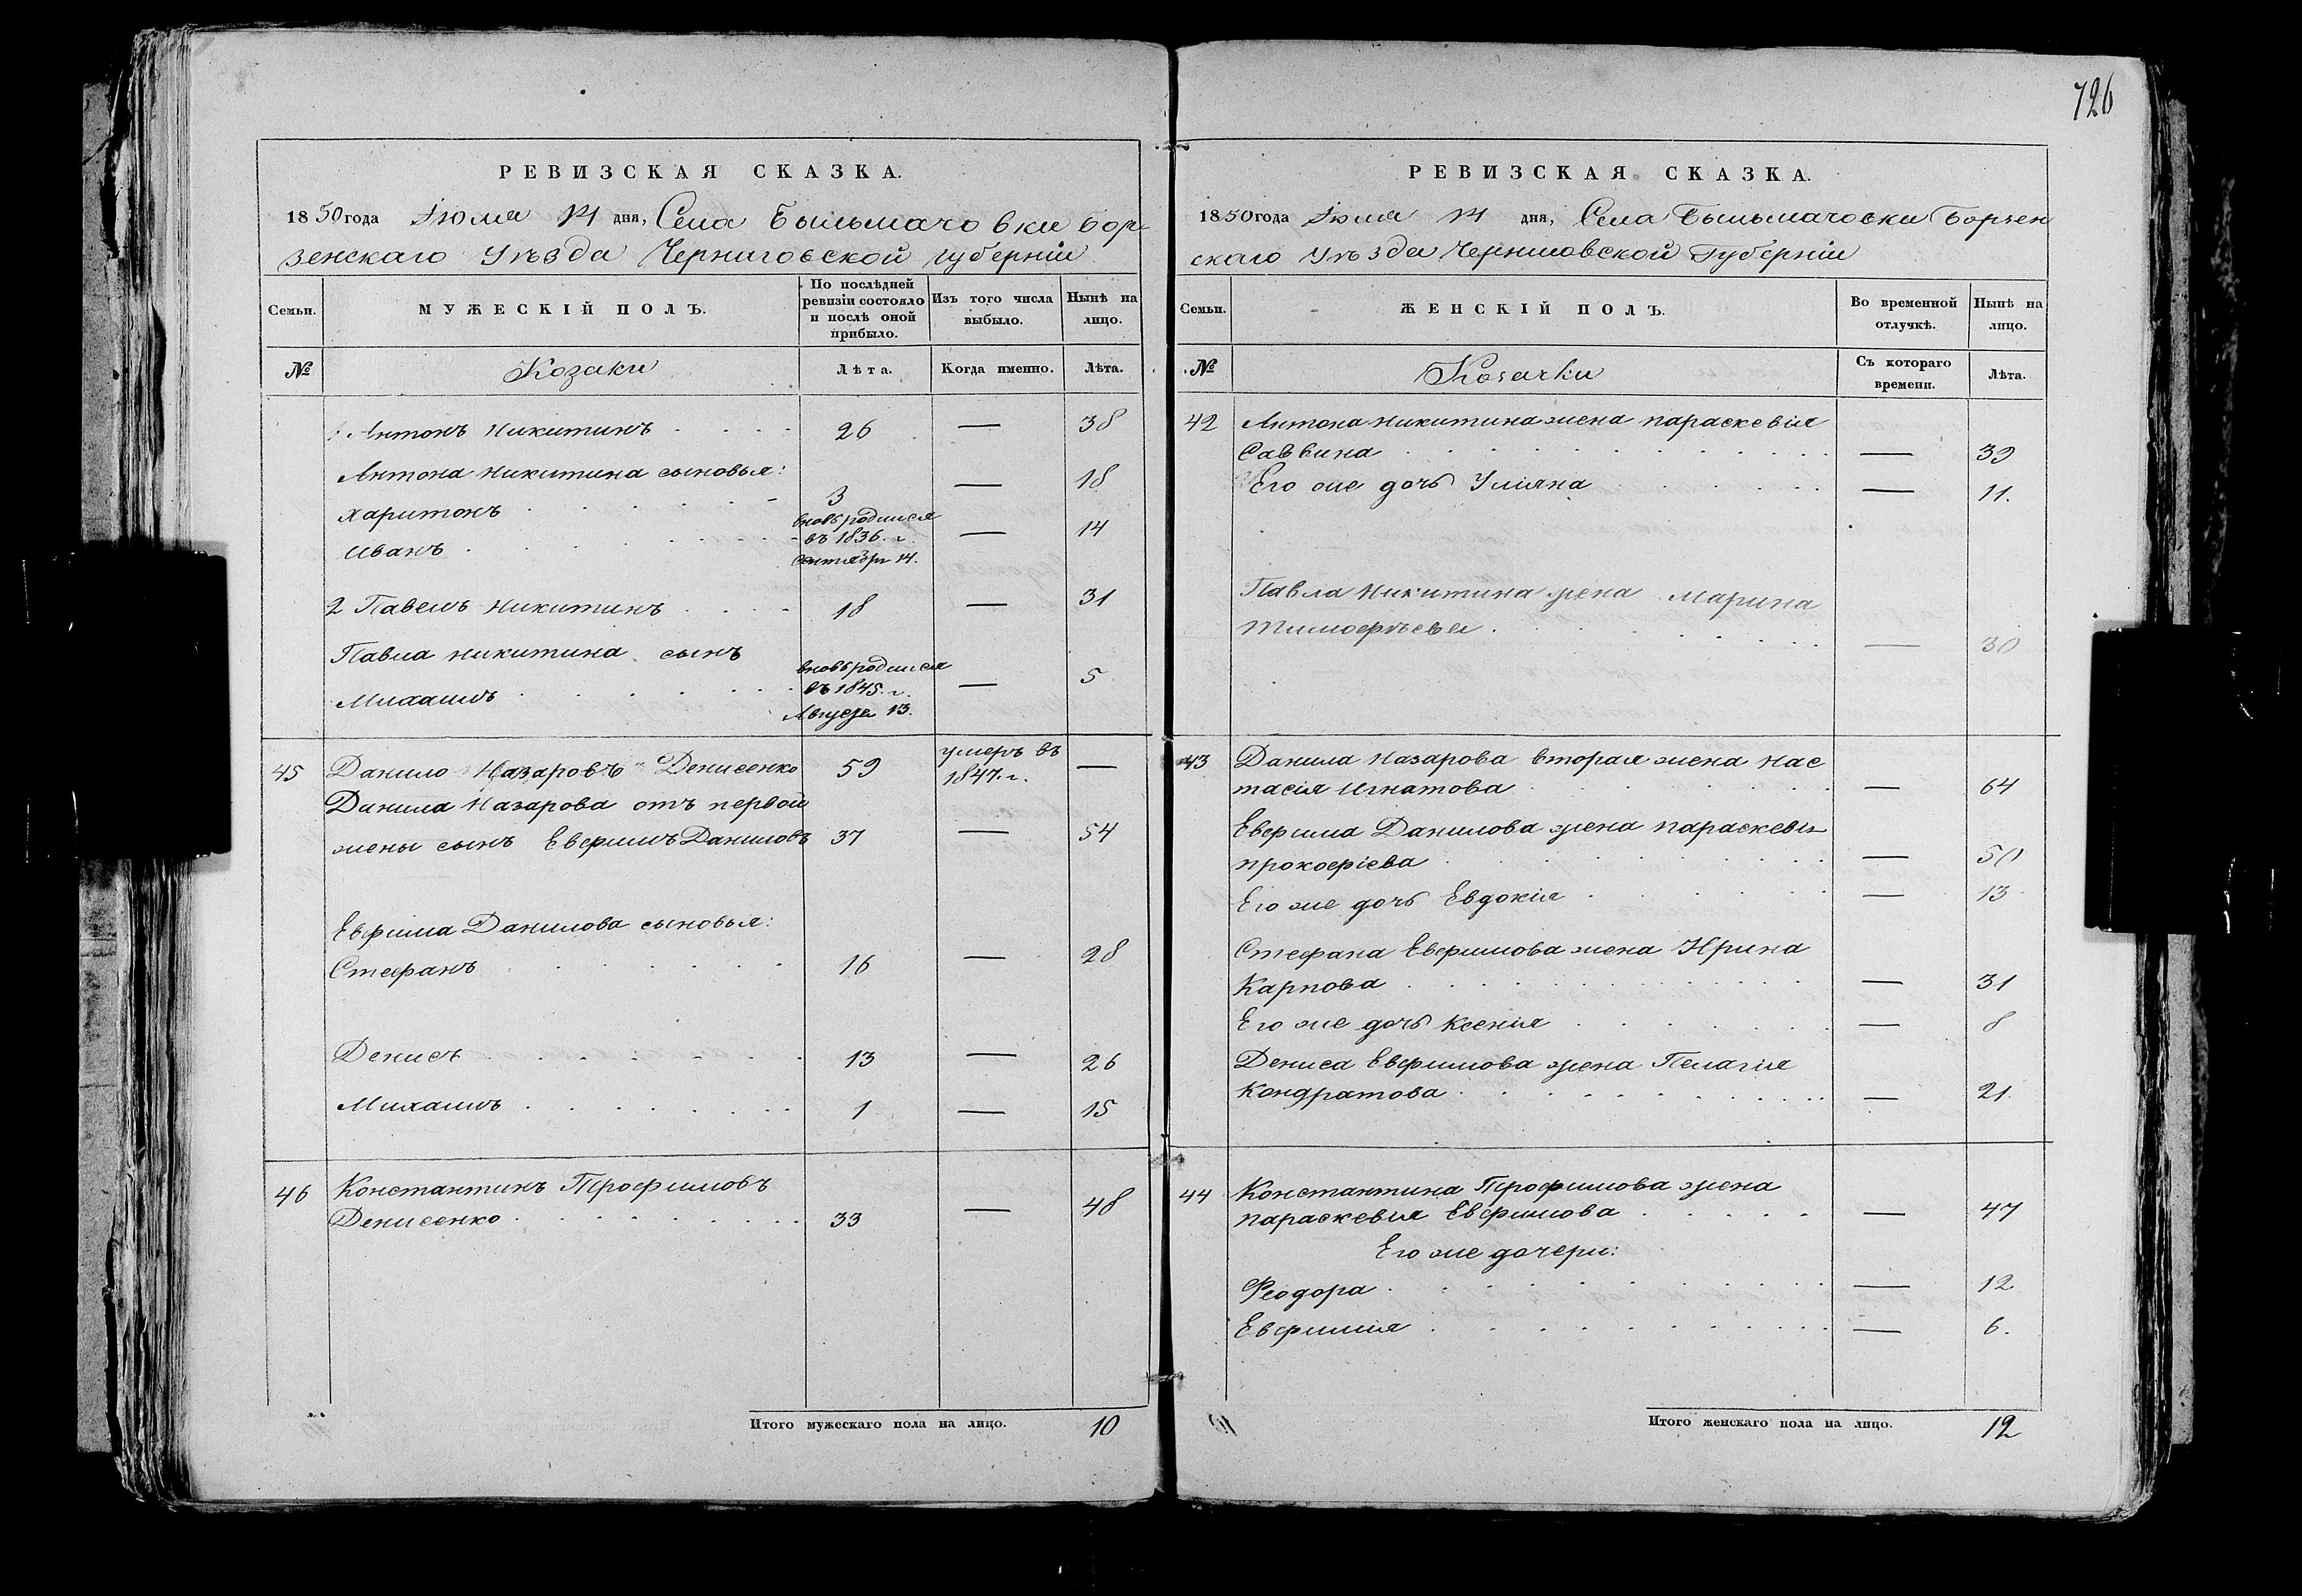 726
РЕВИЗСКАЯ СКАЗКА.
1850 года Іюля 14 дня, Села Быльмачовки Бор-
зенскаго Уѣзда Черниговской губерніи
Семьи.
МУЖЕСКІЙ ПОЛЪ.
По послѣдней ревизіи состояло и послѣ оной прибыло.
Изъ того числа выбыло.
Нынѣ на лицо.
№
Козаки
Лѣта.
Когда именно.
Лѣта.
1 Антонъ Никитинъ 26 — 38
Антона Никитина сыновья:
Харитонъ 3 — 18
Иванъ вновь родился въ 1836. г. Сентября 14. — 14
2 Павелъ Никитинъ 18 — 31
Павла Никитина сынъ
Михаилъ вновь родился въ 1845. г. Августа 13. — 5
45 Данило Назаровъ Денисенко 59 умеръ въ 1847. г. —
Данила Назарова отъ первой
жены сынъ Евфимъ Даниловъ 37 — 54
Евфима Данилова сыновья:
Стефанъ 16 — 28
Денисъ 13 — 26
Михаилъ 1 — 15
46 Константинъ Трофимовъ
Денисенко 33 — 48
Итого мужескаго пола на лицо. 10
РЕВИЗСКАЯ СКАЗКА.
1850 года Іюля 14 дня, Села Быльмачовки Борзен
скаго Уѣзда Черниговской Губерніи
Семьи.
ЖЕНСКІЙ ПОЛЪ.
Во временной отлучкѣ.
Нынѣ на лицо.
№
Козачки
Съ котораго времени.
Лѣта.
42 Антона Никитина жена Параскевія
Саввина — 39
Его же дочь Уліяна — 11.
Павла Никитина жена Марина
Тимофѣева — 30
43 Данила Назарова вторая жена Нас
тасія Игнатова — 64
Евфима Данилова жена Параскевія
Прокофіева — 50
Его же дочь Евдокія — 13
Стефана Евфимова жена Ирина
Карпова — 31
Его же дочь Ксенія — 8
Дениса Евфимова жена Пелагія
Кондратова — 21.
44 Константина Трофимова жена
Параскевія Евфимова — 47
Его же дочери:
Феодора — 12
Евфимія — 6.
Итого женскаго пола на лицо. 12